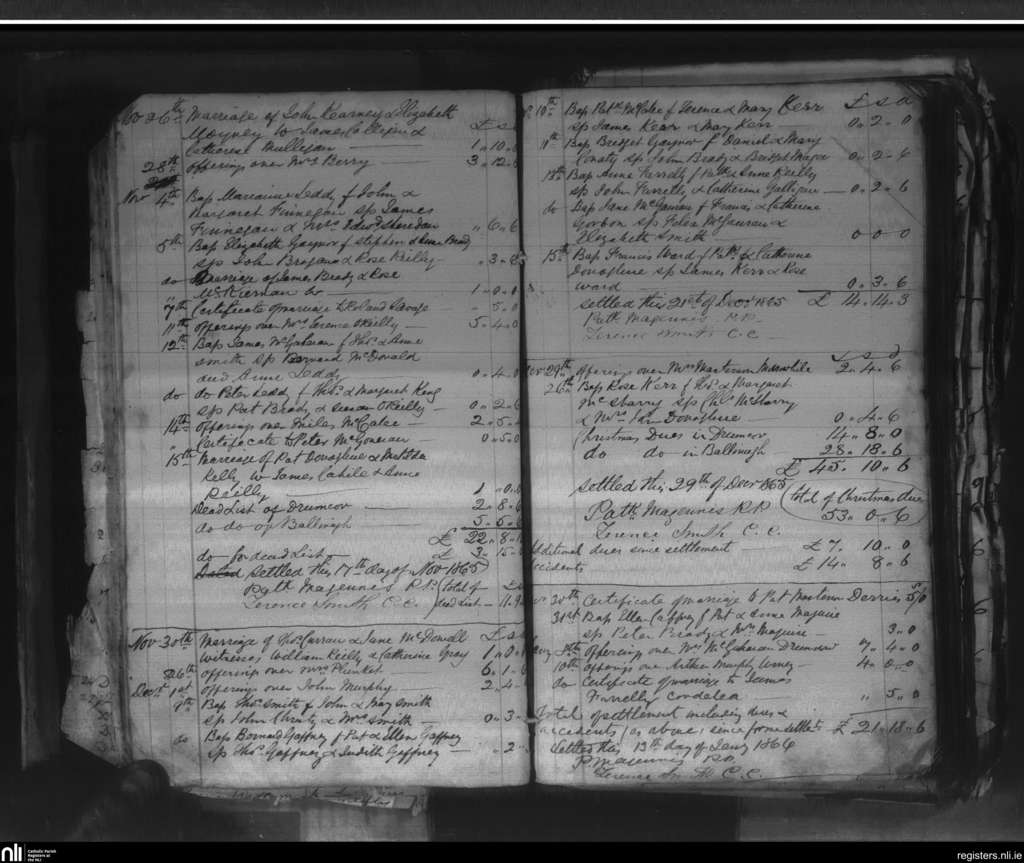 Nov 26th Marriage of John Kearney & Elizabeth
Moyney W James &
Catherine Mulligan 1 " 10 "
28th offerings over Mrs Berry 3 " 12 "
£ s d
Nov 4th Bap Marianne Leddy f John &
Margaret Finnegan sp James
Finnegan & Mrs Sheridan " 6 " 6
5th Bap Elizabeth Gaynor f Stephen & Anne Brady
sp John & Rose Reilly " 3 "
do Marriage of James Brady & Rose
McKiernan 1 " 0 "
7th Certificate of marriage to Savage " 5 " 0
11th offerings over Mrs Terence O'Reilly 5 " 4 " 0
12th Bap James McGahern f Thos & Anne
Smith sp Bernard McDonald
and Anne Leddy 0 " 4 "
do do Peter Leddy f Thos & Margaret King
sp Pat Brady & Susan O'Reilly 0 " 2 " 6
14th offerings over Miles McCabe 2 " 5 "
Certificate to Peter McGowran 0 " 5 " 0
15th Marriage of Pat Donaghue &
Kelly W James Cahill & Anne
Reilly 1 " 0 "
Dead List of Drumcor 2 " 8 "
do do of Ballinagh 5 " 5 "
£ 22 " 8 "
do for dead List £ 3 " 15 "
settled this 17th day of Nov 1865
Path Magennis P.P. (total of
Terence Smith C.C. dead List
Nov 30th Marriage of Thos Curran & Jane McDowell £ s
Witnesses William Reilly & Catherine Gray 1 " 0 "
26th offerings over Mrs Plunket 6 " 1 "
Decr 1st offerings over John Murphy 2 " 4 "
9th Bap Thos Smith f John & May Smith
sp John Christy & Mrs Smith 0 " 3 "
do Bap Bernard Gaffney f Pat & Ellen Gaffney
sp Thos Gaffney & Judith Gaffney " 2 "
10th Bap Patk McCabe f Terence & Mary Kerr £ s d
sp James Kerr & Mary Kerr 0 " 2 " 0
11th Bap Bridget Gaynor f Daniel & Mary
Conaty sp John Brady & Bridget 0 " 2 " 6
Bap Anne Farrelly f Patk & Anne Reilly
sp John Farrelly & Catherine Galligan 0 " 2 " 6
do Bap Jane McGauran f Francis & Catherine
sp Peter McGauran &
Elizabeth Smith 0 0 0
15th Bap Francis Ward f Patk & Catherine
Donoghue sp James Kerr & Rose
Ward 0 " 3 " 6
settled this 21st of Decr 1865 £ 14 " 14 " 3
Patk Magennis P.P.
Terence Smith C.C.
£ s d
29th offerings over Mrs 2 " 4 " 6
26th Bap Rose Kerr f Thos & Margaret
McSharry sp Chs McSharry
& Mrs Donoghue 0 " 4 " 6
Christmas Dues in Drumcor 14 " 8 " 0
do do in Ballinagh 28 " 13 " 6
£ 45 " 10 " 6
settled this 29th of Decr 1865
(total of Christmas dues
53 " 0 " 6)
Patk Magennis P.P.
Terence Smith C.C.
additional dues since settlement £ 7 " 10 " 0
accidents £ 14 " 8 " 6
30th Certificate of marriage to Pat Derries 5/0
31st Bap Ellen Caffrey f Pat & Anne Maguire
sp Peter Brady & Mrs Maguire 3 " 0
offerings over Mrs McGahern Drumcor 7 " 4 " 0
10th offerings over Arthur Murphy 4 " 0 " 0
do Certificate of marriage to James
Farrelly Cordalea " 5 " 0
Total of settlement including dues &
accidents (as above) since from settlt £ 21 " 18 " 6
settled this 13th day of Jany 1866
P. Magennis P.P.
Terence Smith C.C.
nli
Catholic Parish
Registers at
the NLI
registers.nli.ie